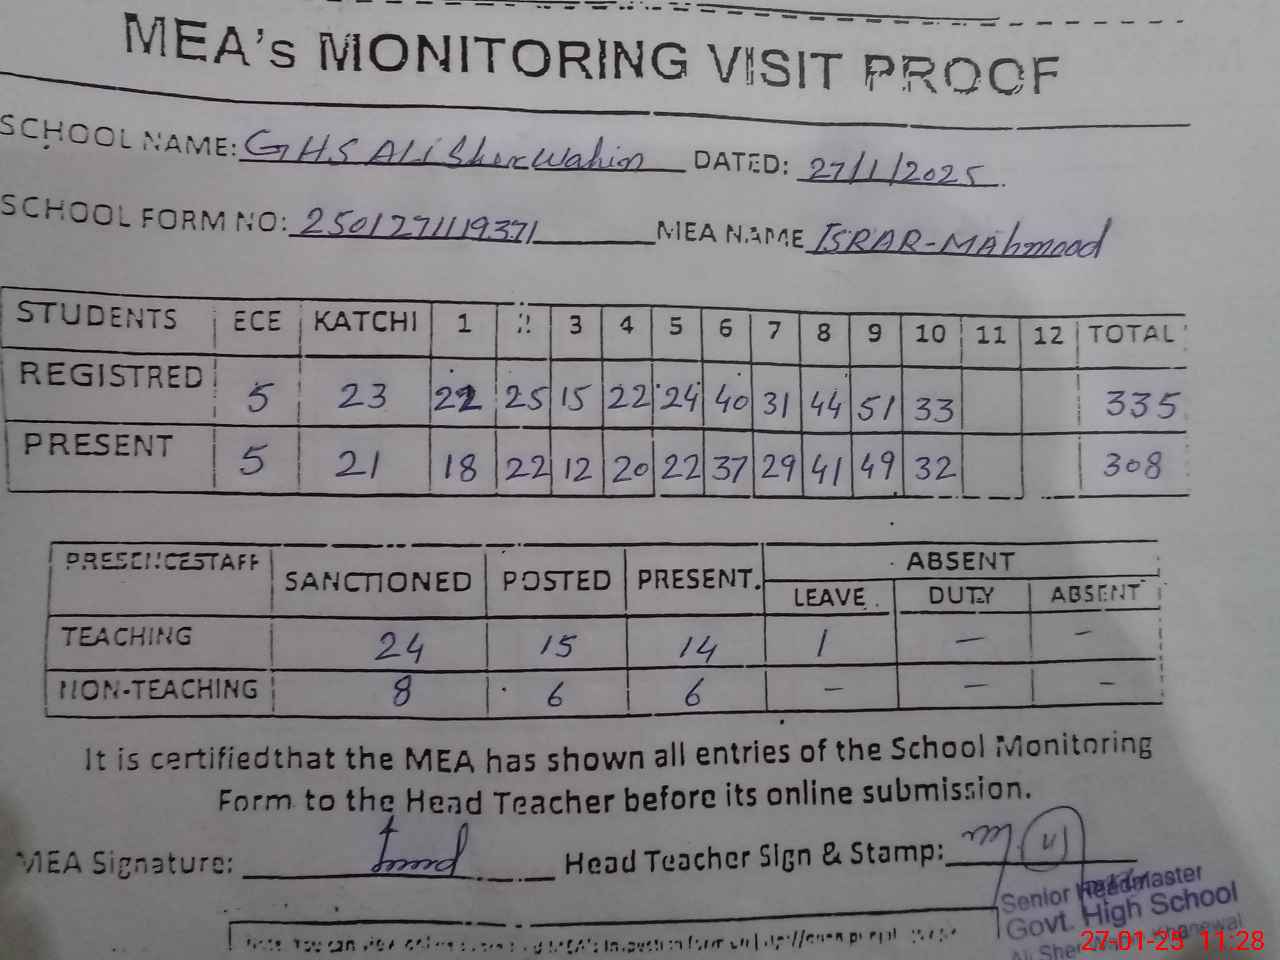 MEA's MONITORING VISIT PROOF
SCHOOL NAME: GHS ALi Sher Wahin DATED: 27/1/2025.
SCHOOL FORM NO: 2501271119371 MEA NAME ISRAR-MAhmood
STUDENTS ECE KATCHI 1 2 3 4 5 6 7 8 9 10 11 12 TOTAL
REGISTRED 5 23 22 25 15 22 24 40 31 44 51 33 335
PRESENT 5 21 18 22 12 20 22 37 29 41 49 32 308
PRESENCESTAFF SANCTIONED POSTED PRESENT. ABSENT
LEAVE DUTY ABSENT
TEACHING 24 15 14 1 - -
NON-TEACHING 8 6 6 - - -
It is certified that the MEA has shown all entries of the School Monitoring
Form to the Head Teacher before its online submission.
MEA Signature: Head Teacher Sign & Stamp:
Senior Headmaster
Govt. High School
Ali Sher Khanewal
Note: You can
27-01-25 11:28